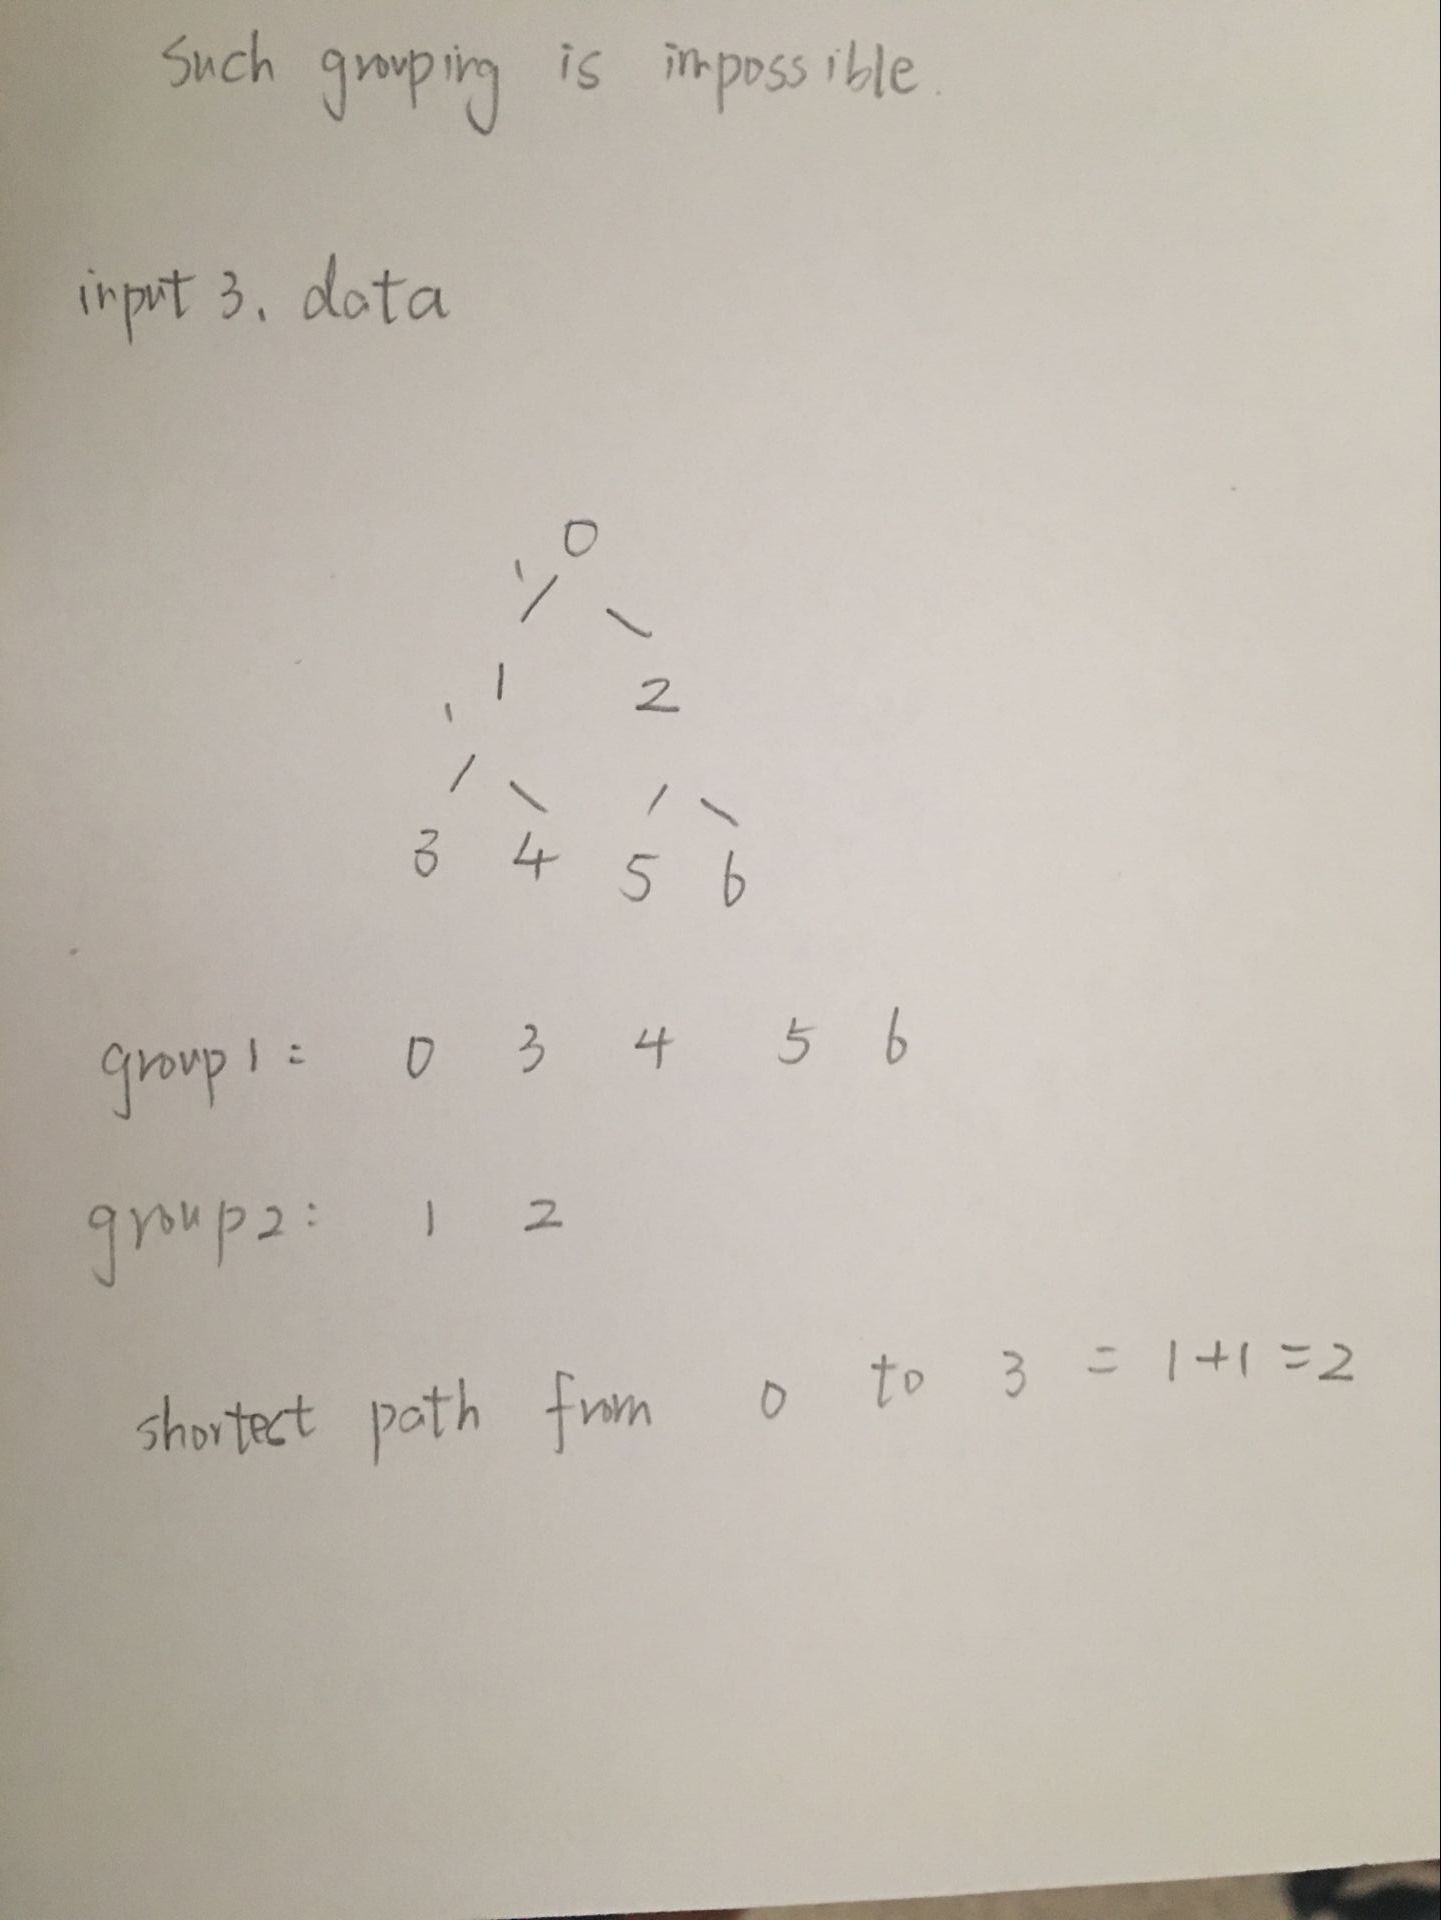 Such grouping is impossible.
input 3. data
0
1
1 2
1
3 4 5 6
group 1 = 0 3 4 5 6
group 2 : 1 2
shortect path from 0 to 3 = 1+1 = 2